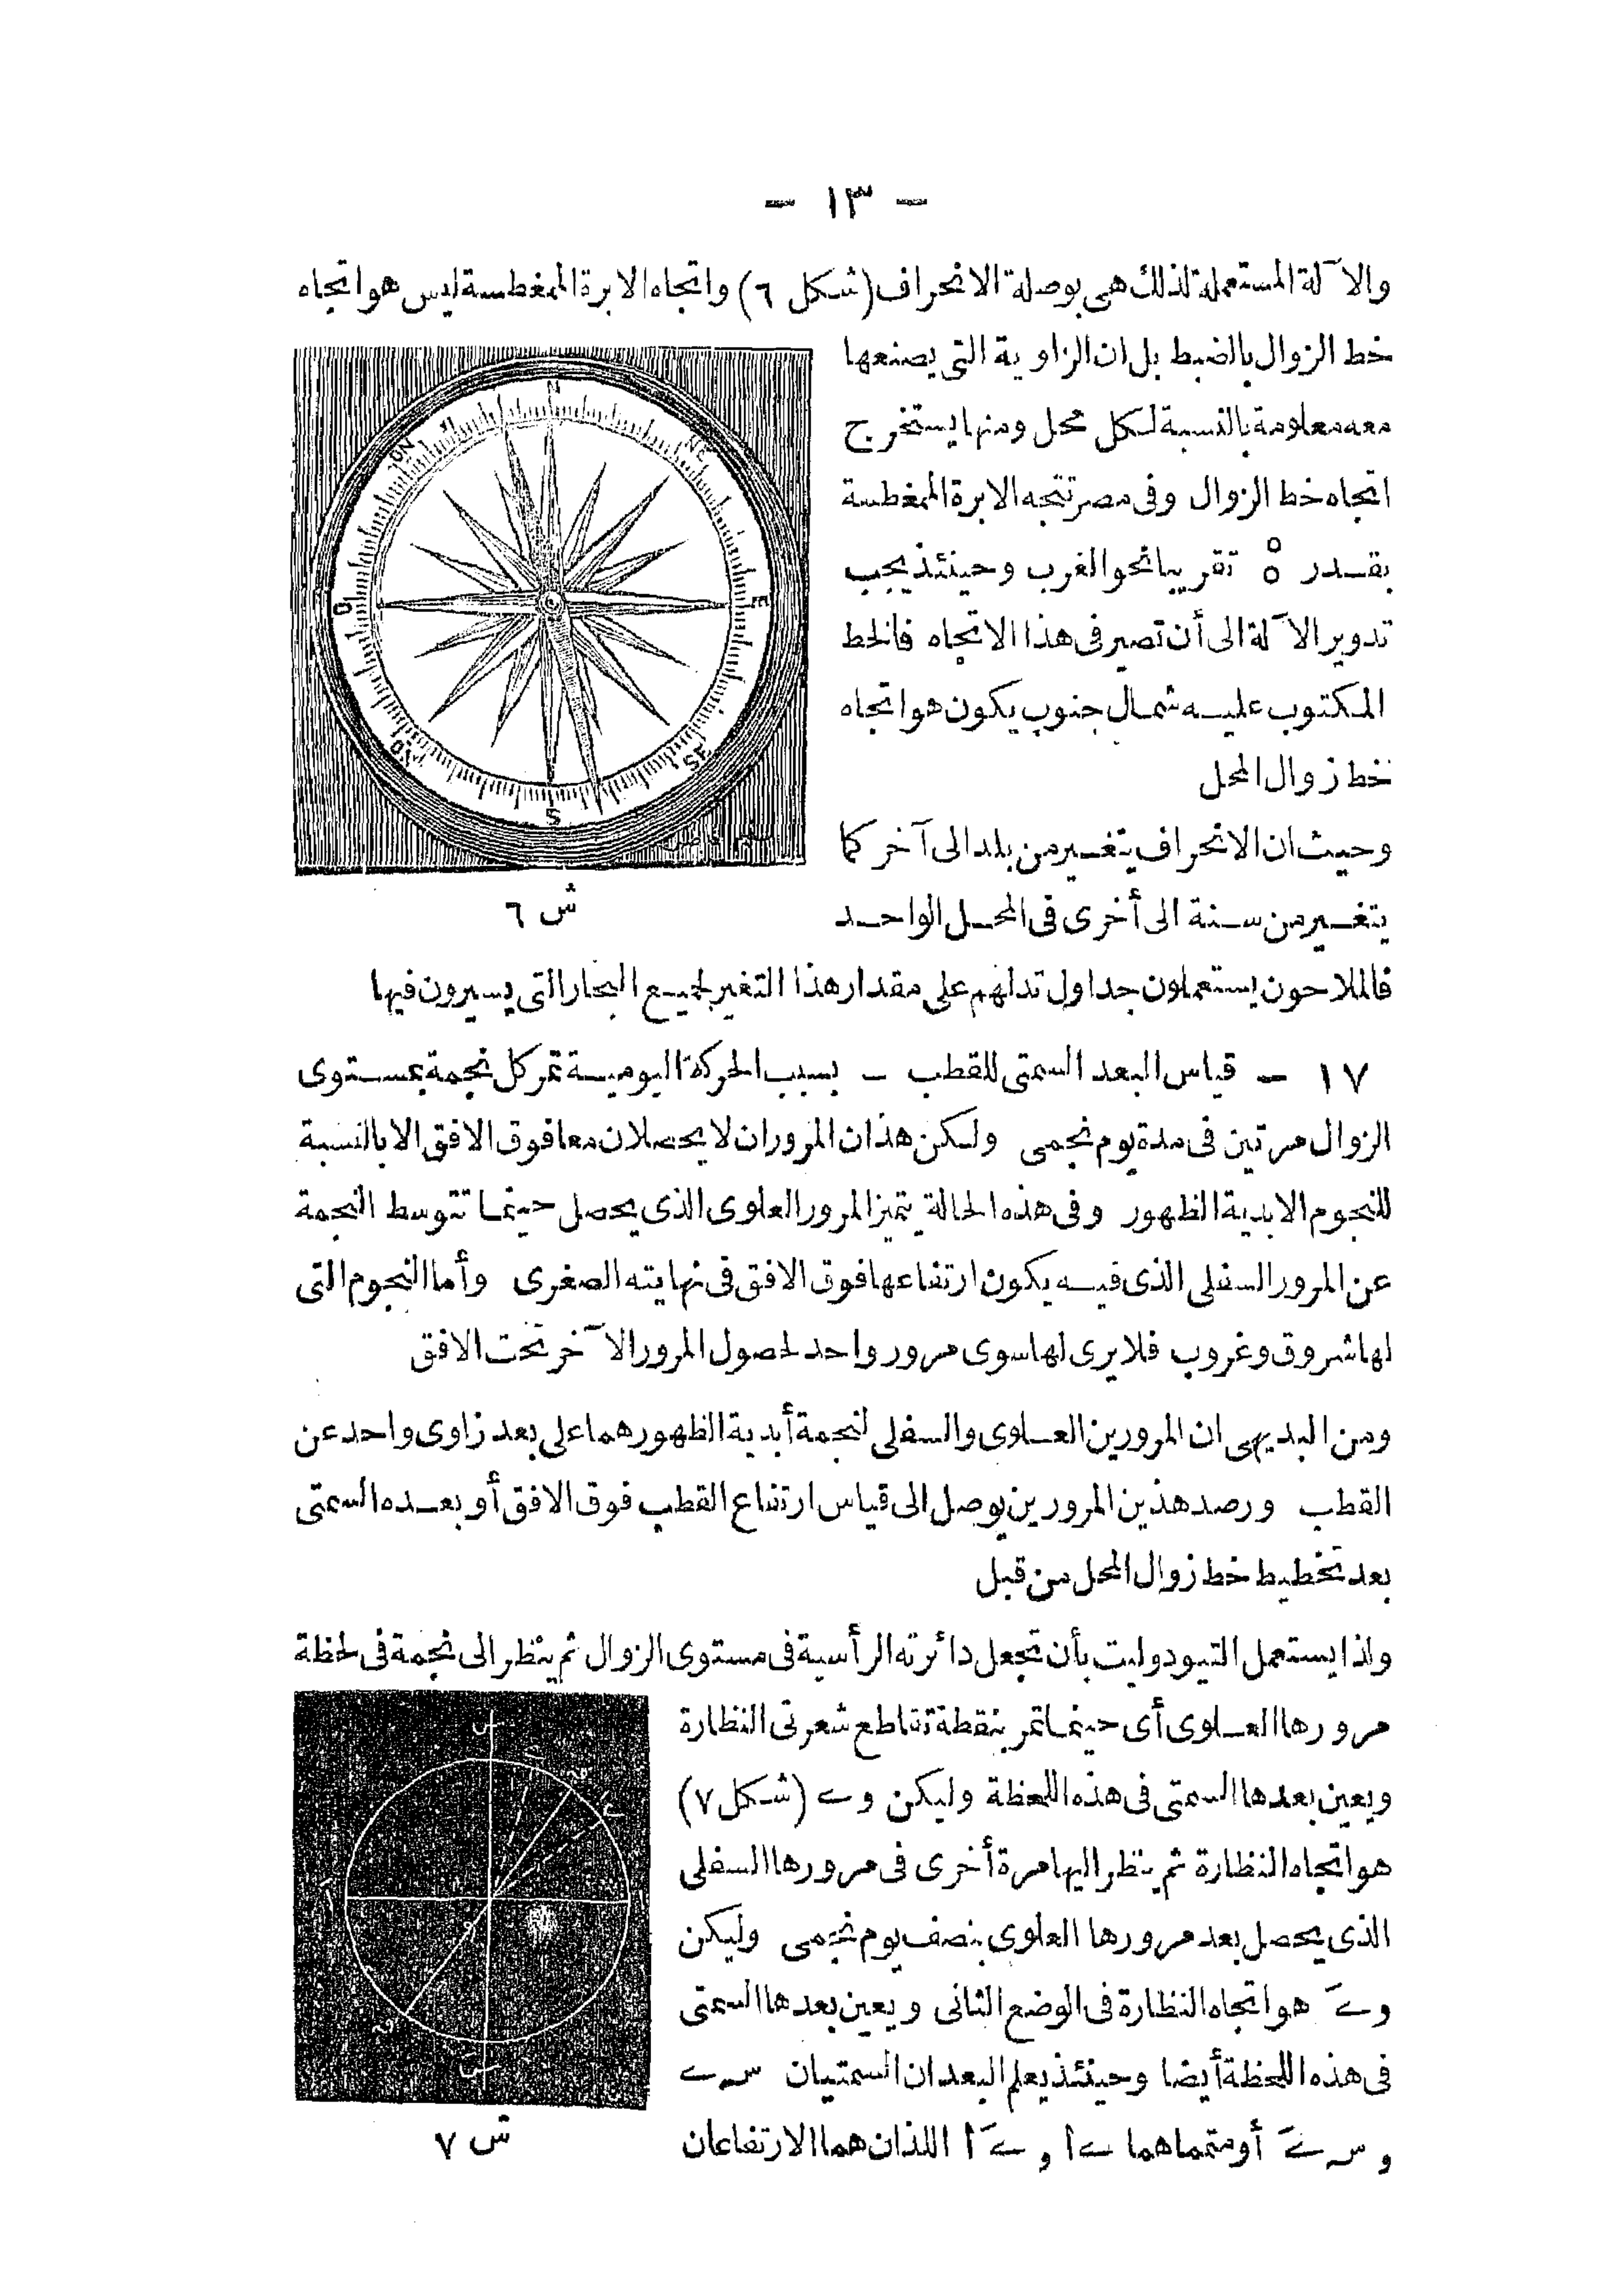 - ١٣ -
والآلة المستعملة لذلك هى بوصلة الانحراف (شكل ٦) واتجاه الابرة الممغطسة ليس هو اتجاه
خط الزوال بالضبط بل ان الزاوية التى يصنعها
معه معلومة بالنسبة لكل محل ومنها يستخرج
اتجاه خط الزوال وفى مصر تتجه الابرة الممغطسة
بقدر °٥ تقريبا نحو الغرب وحينئذ يجب
تدوير الآلة الى أن تصير فى هذا الاتجاه فالخط
المكتوب عليه شمال جنوب يكون هو اتجاه
خط زوال المحل
وحيث ان الانحراف يتغير من بلد الى آخر كما
يتغير من سنة الى أخرى فى المحل الواحد
N
NE
E
SE
S
SO
O
NO
ش ٦
فالملاحون يستعملون جداول تدلهم على مقدار هذا التغير لجميع البحار التى يسيرون فيها
١٧ - قياس البعد السمتى للقطب - بسبب الحركة اليومية تمر كل نجمة بمستوى
الزوال مرتين فى مدة يوم نجمى ولكن هذان المروران لا يحصلان معا فوق الافق الا بالنسبة
للنجوم الابدية الظهور وفى هذه الحالة يتميز المرور العلوى الذى يحصل حينما تتوسط النجمة
عن المرور السفلى الذى فيه يكون ارتفاعها فوق الافق فى نهايته الصغرى وأما النجوم التى
لها شروق وغروب فلا يرى لها سوى مرور واحد لحصول المرور الآخر تحت الافق
ومن البديهى ان المرورين العلوى والسفلى لنجمة أبدية الظهور هما على بعد زاوى واحد عن
القطب ورصد هذين المرورين يوصل الى قياس ارتفاع القطب فوق الافق أو بعده السمتى
بعد تخطيط خط زوال المحل من قبل
ولذا يستعمل التيودوليت بأن تجعل دائرته الرأسية فى مستوى الزوال ثم ينظر الى نجمة فى لحظة
مرورها العلوى أى حينما تمر بنقطة تقاطع شعرتى النظارة
ويعين بعدها السمتى فى هذه اللحظة وليكن وے (شكل ٧)
هو اتجاه النظارة ثم ينظر اليها مرة أخرى فى مرورها السفلى
الذى يحصل بعد مرورها العلوى بنصف يوم نجمى وليكن
وےَ هو اتجاه النظارة فى الوضع الثانى ويعين بعدها السمتى
فى هذه اللحظة أيضا وحينئذ يعلم البعدان السمتيان سے
و سےَ أو متمماهما ےا و ےَا اللذان هما الارتفاعان
ش ٧